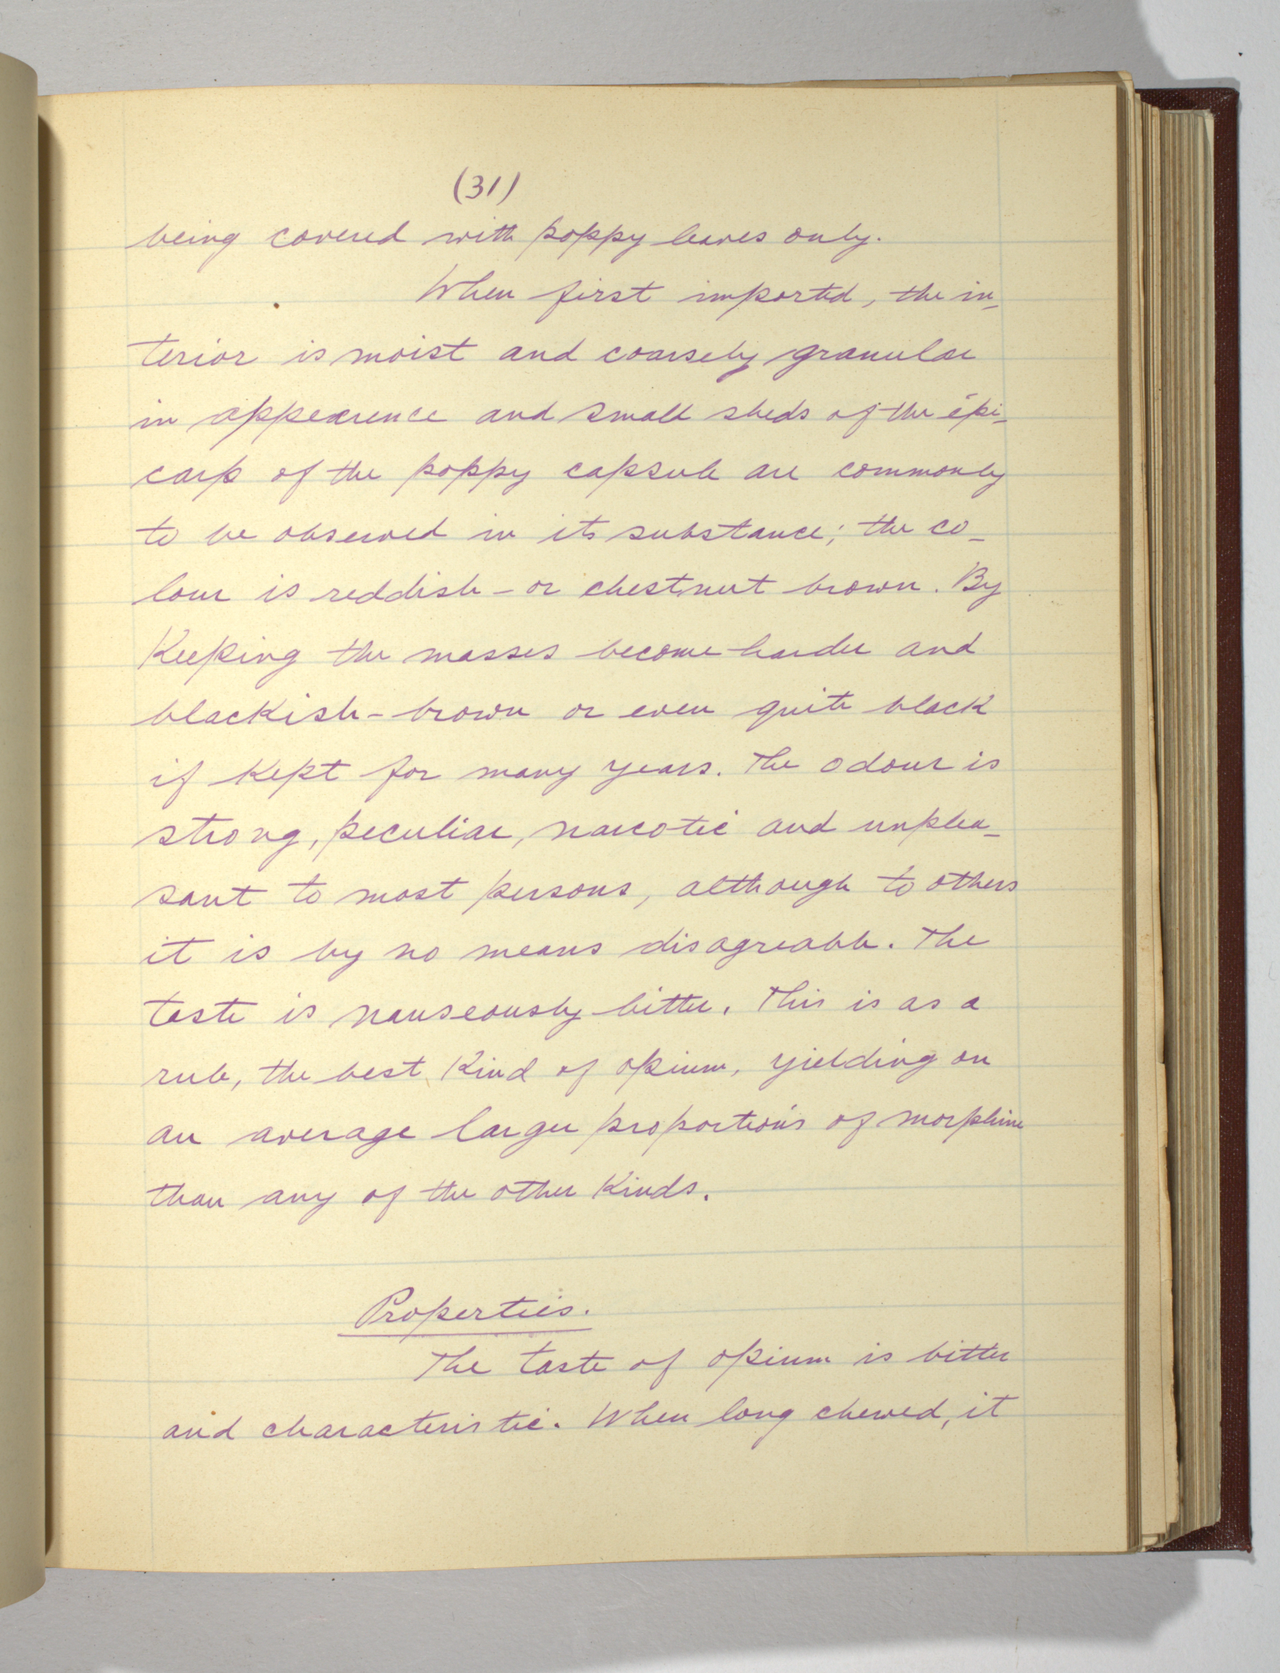 (31)
being covered with poppy leaves only.
When first imported, the in-
terior is moist and coarsely granular
in appearence and small sheds of the épi-
carp of the poppy capsule are commonly
to be observed in its substance; the co-
lour is reddish - or chestnut brown. By
Keeping the masses become harder and
blackish - brown or even quite black
if kept for many years. The odour is
strong, peculiar, narcotic and unplea-
sant to most persons, although to others
it is by no means disagreable. The
taste is nauseously bitter. This is as a
rule, the best Kind of opium, yielding on
an average larger proportions of morphine
than any of the other Kinds.
Properties.
The taste of opium is bitter
and characteristic. When long chewed, it